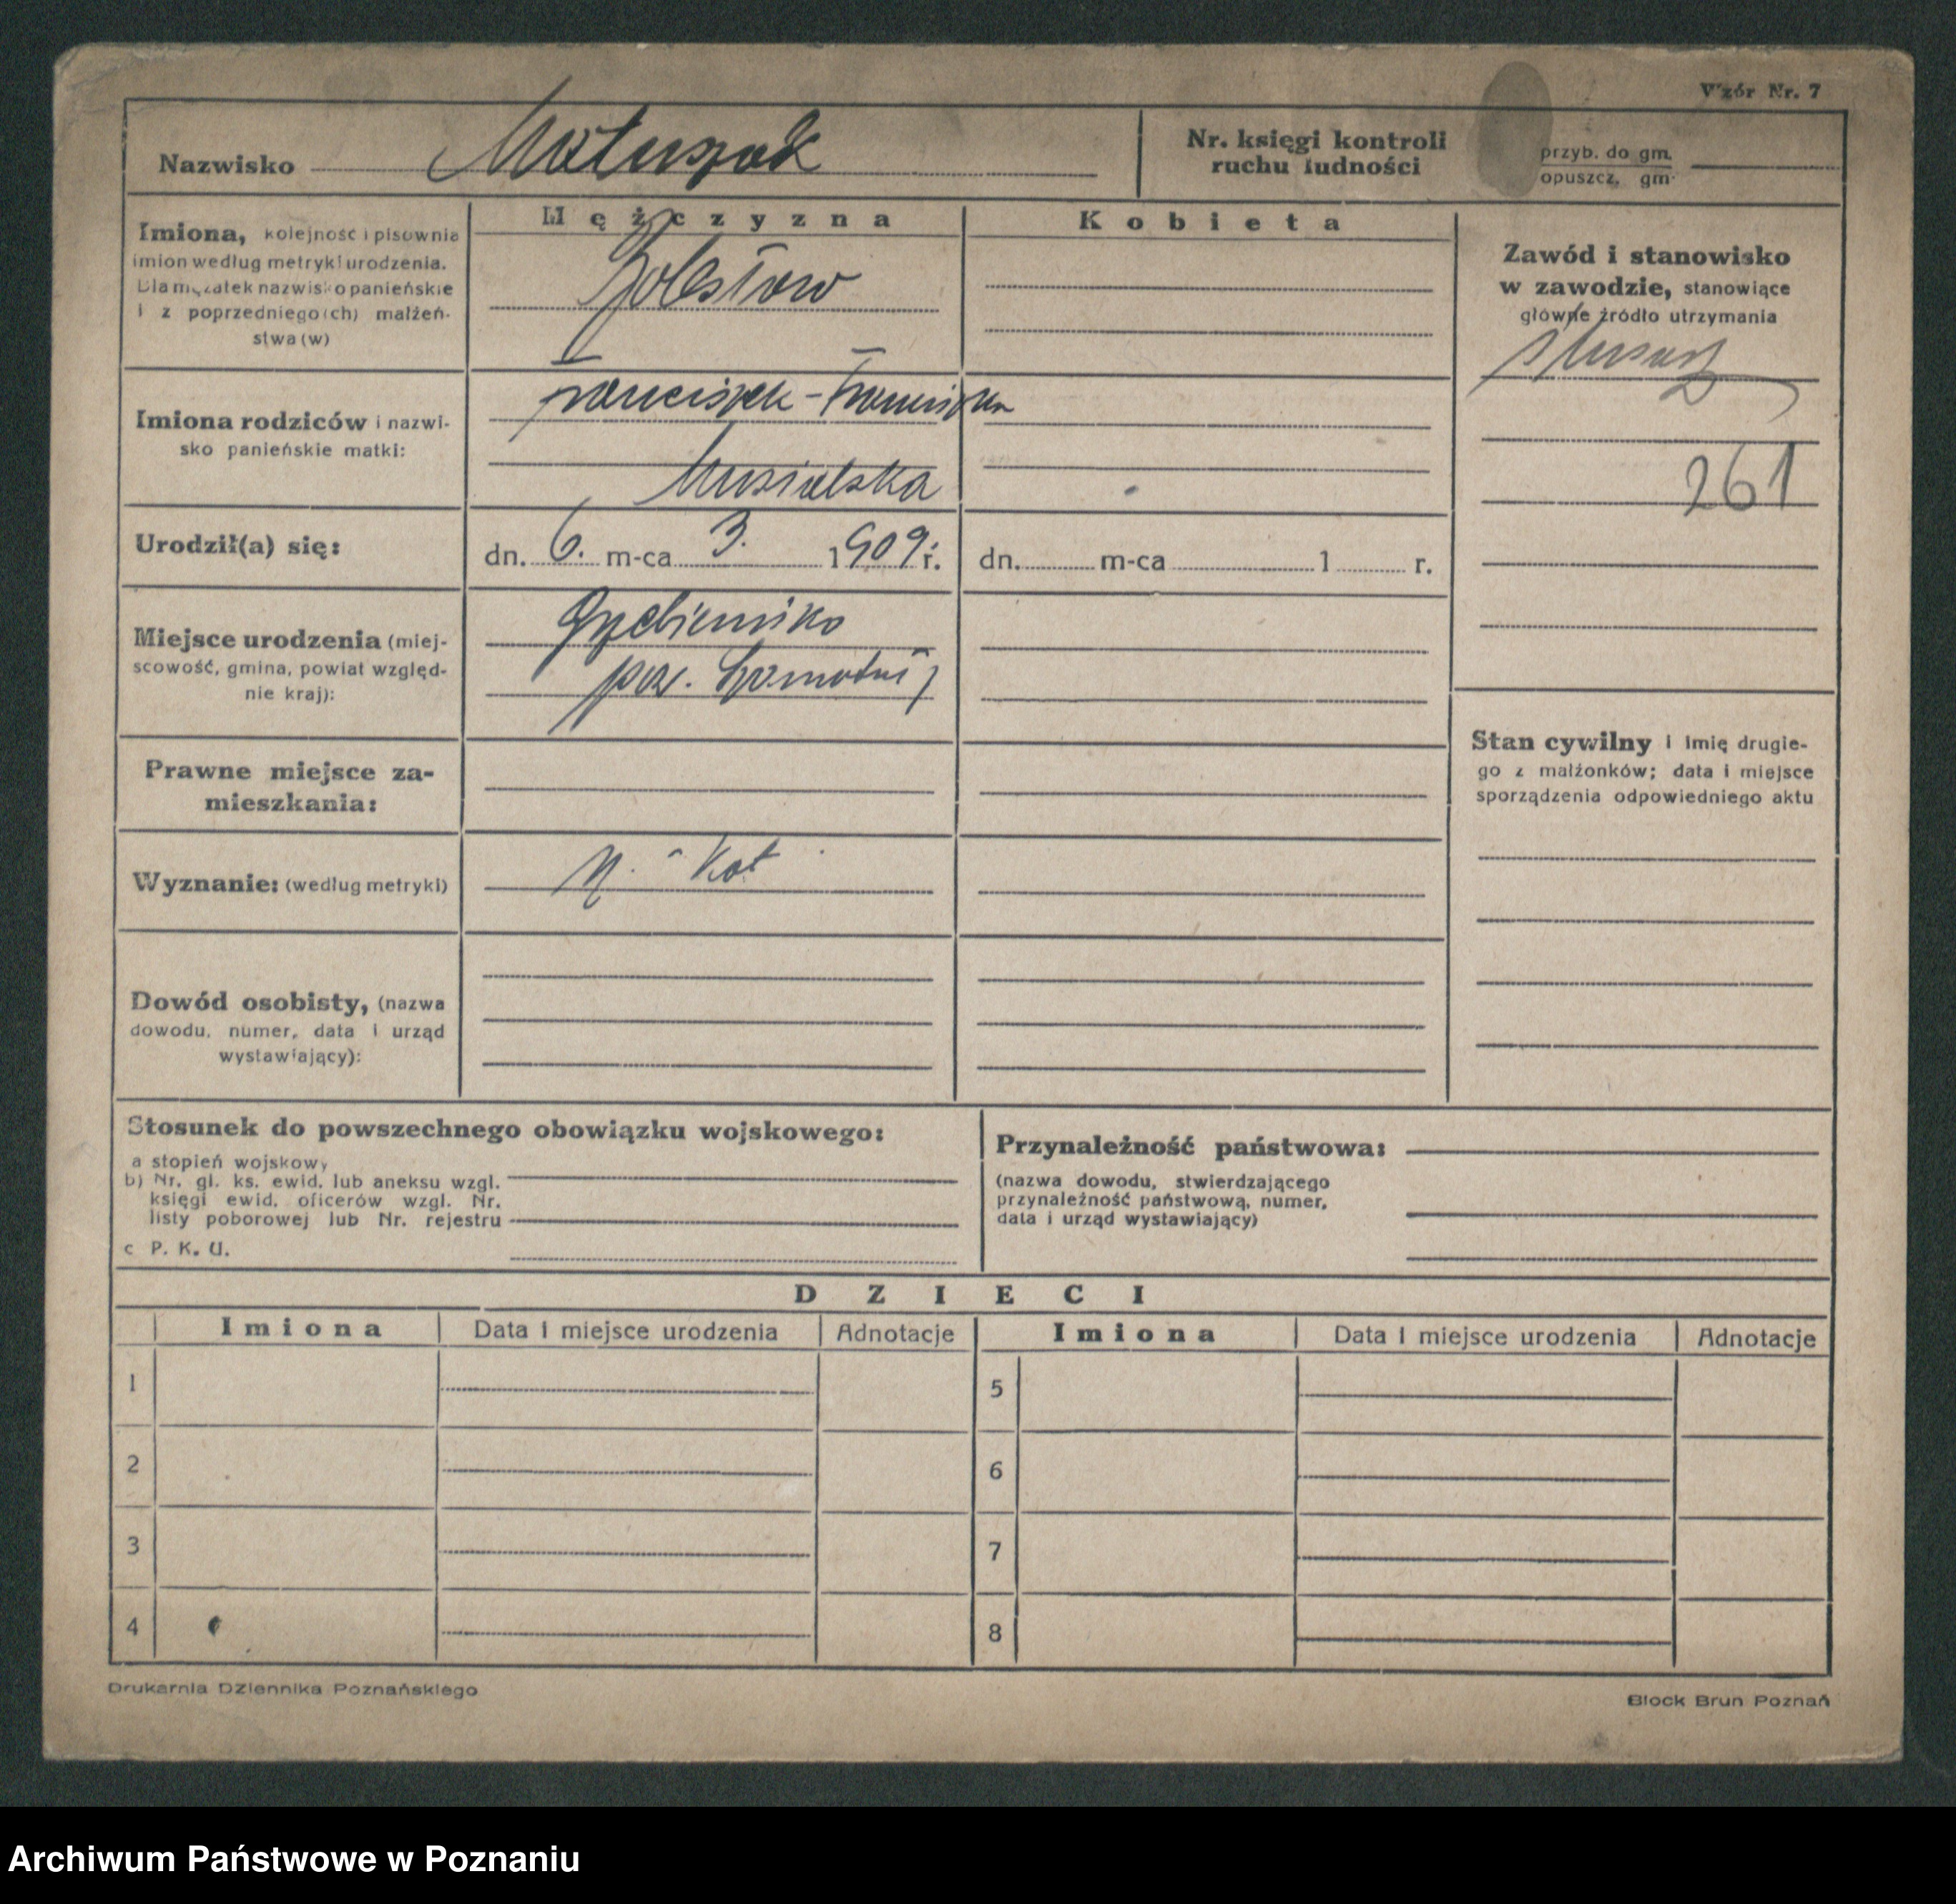 Wzór Nr. 7
Nazwisko Matuszak
Nr. księgi kontroli
ruchu ludności
przyb. do gm.
opuszcz. gm.
Mężczyzna
Kobieta
Imiona, kolejność i pisownia
imion według metryki urodzenia.
Dla mężatek nazwisko panieńskie
i z poprzedniego(ch) małżeń-
stwa (w)
Bolesław
Zawód i stanowisko
w zawodzie, stanowiące
główne źródło utrzymania
ślusarz
Imiona rodziców i nazwi-
sko panieńskie matki:
Franciszek - Franciszka
Musialska
261
Urodził(a) się:
dn. 6. m-ca 3. 1909 r.
dn. m-ca 1 r.
Miejsce urodzenia (miej-
scowość, gmina, powiat względ-
nie kraj):
Grzebienisko
pow. Szamotuły
Prawne miejsce za-
mieszkania:
Stan cywilny i imię drugie-
go z małżonków; data i miejsce
sporządzenia odpowiedniego aktu
Wyznanie: (według metryki)
rz. - kat
Dowód osobisty, (nazwa
dowodu, numer, data i urząd
wystawiający):
Stosunek do powszechnego obowiązku wojskowego:
a stopień wojskowy
b) Nr. gł. ks. ewid. lub aneksu wzgl.
księgi ewid. oficerów wzgl. Nr.
listy poborowej lub Nr. rejestru
c P. K. U.
Przynależność państwowa:
(nazwa dowodu, stwierdzającego
przynależność państwową, numer,
data i urząd wystawiający)
DZIECI
Imiona Data i miejsce urodzenia Adnotacje Imiona Data i miejsce urodzenia Adnotacje
1 5
2 6
3 7
4 8
Drukarnia Dziennika Poznańskiego
Block Brun Poznań
Archiwum Państwowe w Poznaniu